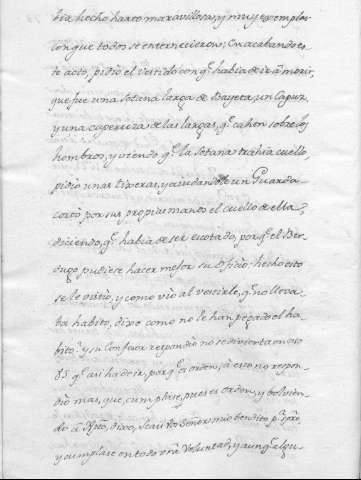 bia hecho harto maravillosa, y muy exemplar
con que todos se enternecieron; En acabando es-
te acto, pidio el vestido con q.e habia de ir â morir,
que fue una Sotana larga de Bayeta, un Capuz,
y una caperuza de las largas, q.e cahen sobre los
hombros, y viendo q.e la Sotana trahia cuello,
pidio unas tixeras, y ayudandole un Guarda
cortò por sus propias manos el cuello de ella,
diciendo, q.e habia de ser escotado, por q.e el Ber-
dugo pudiese hacer mejor su Oficio: hecho esto
se le vistio, y como viò al vestirle, q.e no lleva-
ba habito, dixo como no le han pegado el ha-
bito? y su Confesor respondio no se divierta en eso
V.S. q.e asi ha de ir, por q.e es orden, â eso no respon-
dio mas, que, cumplase, pues es orden, y bolvien-
do â Xpto, dixo, Jesus Señor mio bendito
y cumplase en todo vrâ Voluntad, y aunq.e el qu-